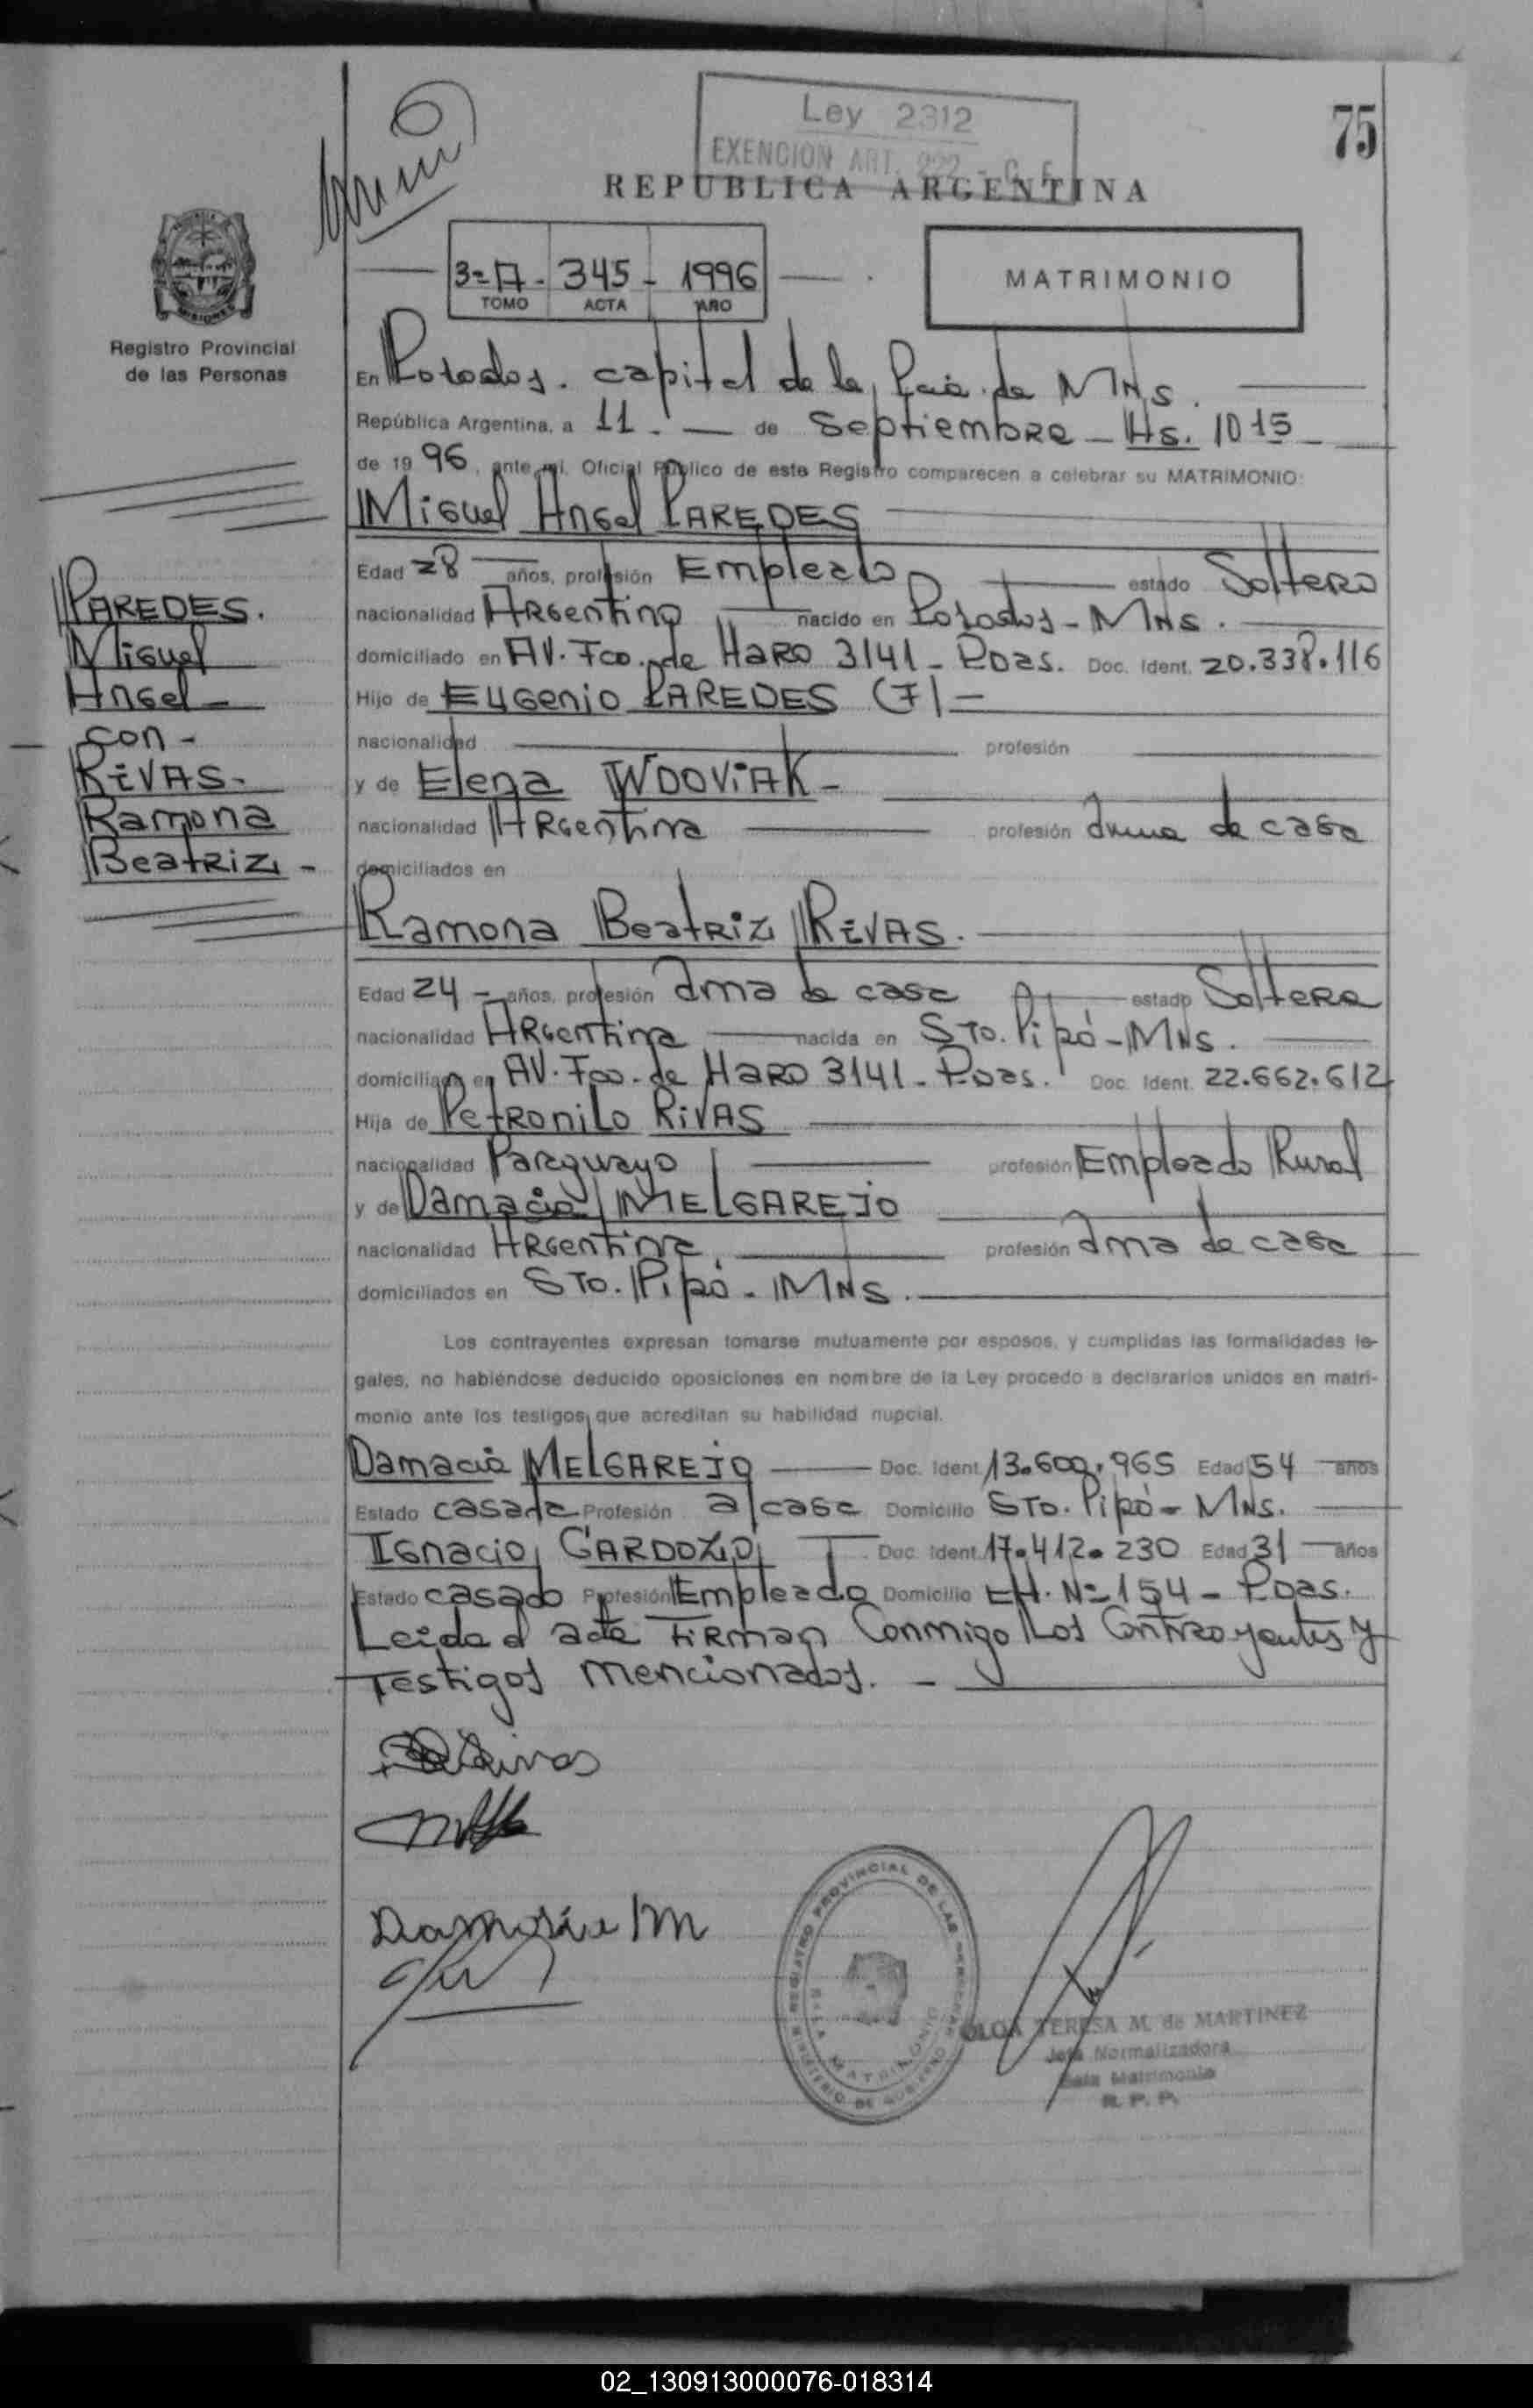 Ley 2312
EXENCION ART. 222 - C. F.
75
REPUBLICA ARGENTINA
3=A - 345 - 1996
TOMO ACTA AÑO
MATRIMONIO
Registro Provincial
de las Personas
En Posadas. capital de la Pcia. de MNS.
República Argentina, a 11. — de Septiembre - Hs. 10 15
de 19 96, ante mí, Oficial Público de este Registro comparecen a celebrar su MATRIMONIO:
Miguel Angel PAREDES
Edad 28 años, profesión Empleado estado Soltero
nacionalidad Argentino nacido en Posadas - MNS.
domiciliado en AV. Fco. de HARO 3141 - Pdas. Doc. Ident. 20.338.116
Hijo de Eugenio PAREDES (F) -
nacionalidad profesión
y de Elena WDOViAK -
nacionalidad Argentina profesión ama de casa
domiciliados en
PAREDES.
Miguel
Angel -
con -
RiVAS -
Ramona
Beatriz -
Ramona Beatriz RiVAS.
Edad 24 - años, profesión ama de casa estado Soltera
nacionalidad Argentina nacida en STO. Pipó - MNS.
domiciliada en AV. Fco. de HARO 3141 - Pdas. Doc. Ident. 22.662.612
Hija de Petronilo RiVAS
nacionalidad Paraguayo profesión Empleado Rural
y de Damacia MELGAREJO
nacionalidad Argentina profesión ama de casa
domiciliados en STO. Pipó - MNS.
Los contrayentes expresan tomarse mutuamente por esposos, y cumplidas las formalidades le-
gales, no habiéndose deducido oposiciones en nombre de la Ley procedo a declararlos unidos en matri-
monio ante los testigos que acreditan su habilidad nupcial.
Damacia MELGAREJO Doc. Ident. 13.600.965 Edad 54 años
Estado casada Profesión a/casa Domicilio STO. Pipó - MNS.
Ignacio CARDOZO Doc. Ident. 17.412.230 Edad 31 años
Estado casado Profesión Empleado Domicilio CH. Nº 154 - Pdas.
Leida el acta Firman Conmigo Los Contrayentes y
Testigos mencionados. -
Rivas
Damasia M
REGISTRO PROVINCIAL DE LAS PERSONAS
SALA MATRIMONIO
MINISTERIO DE GOBIERNO
OLGA TERESA M. de MARTINEZ
Jefa Normalizadora
Sala Matrimonio
R. P. P.
02_130913000076-018314